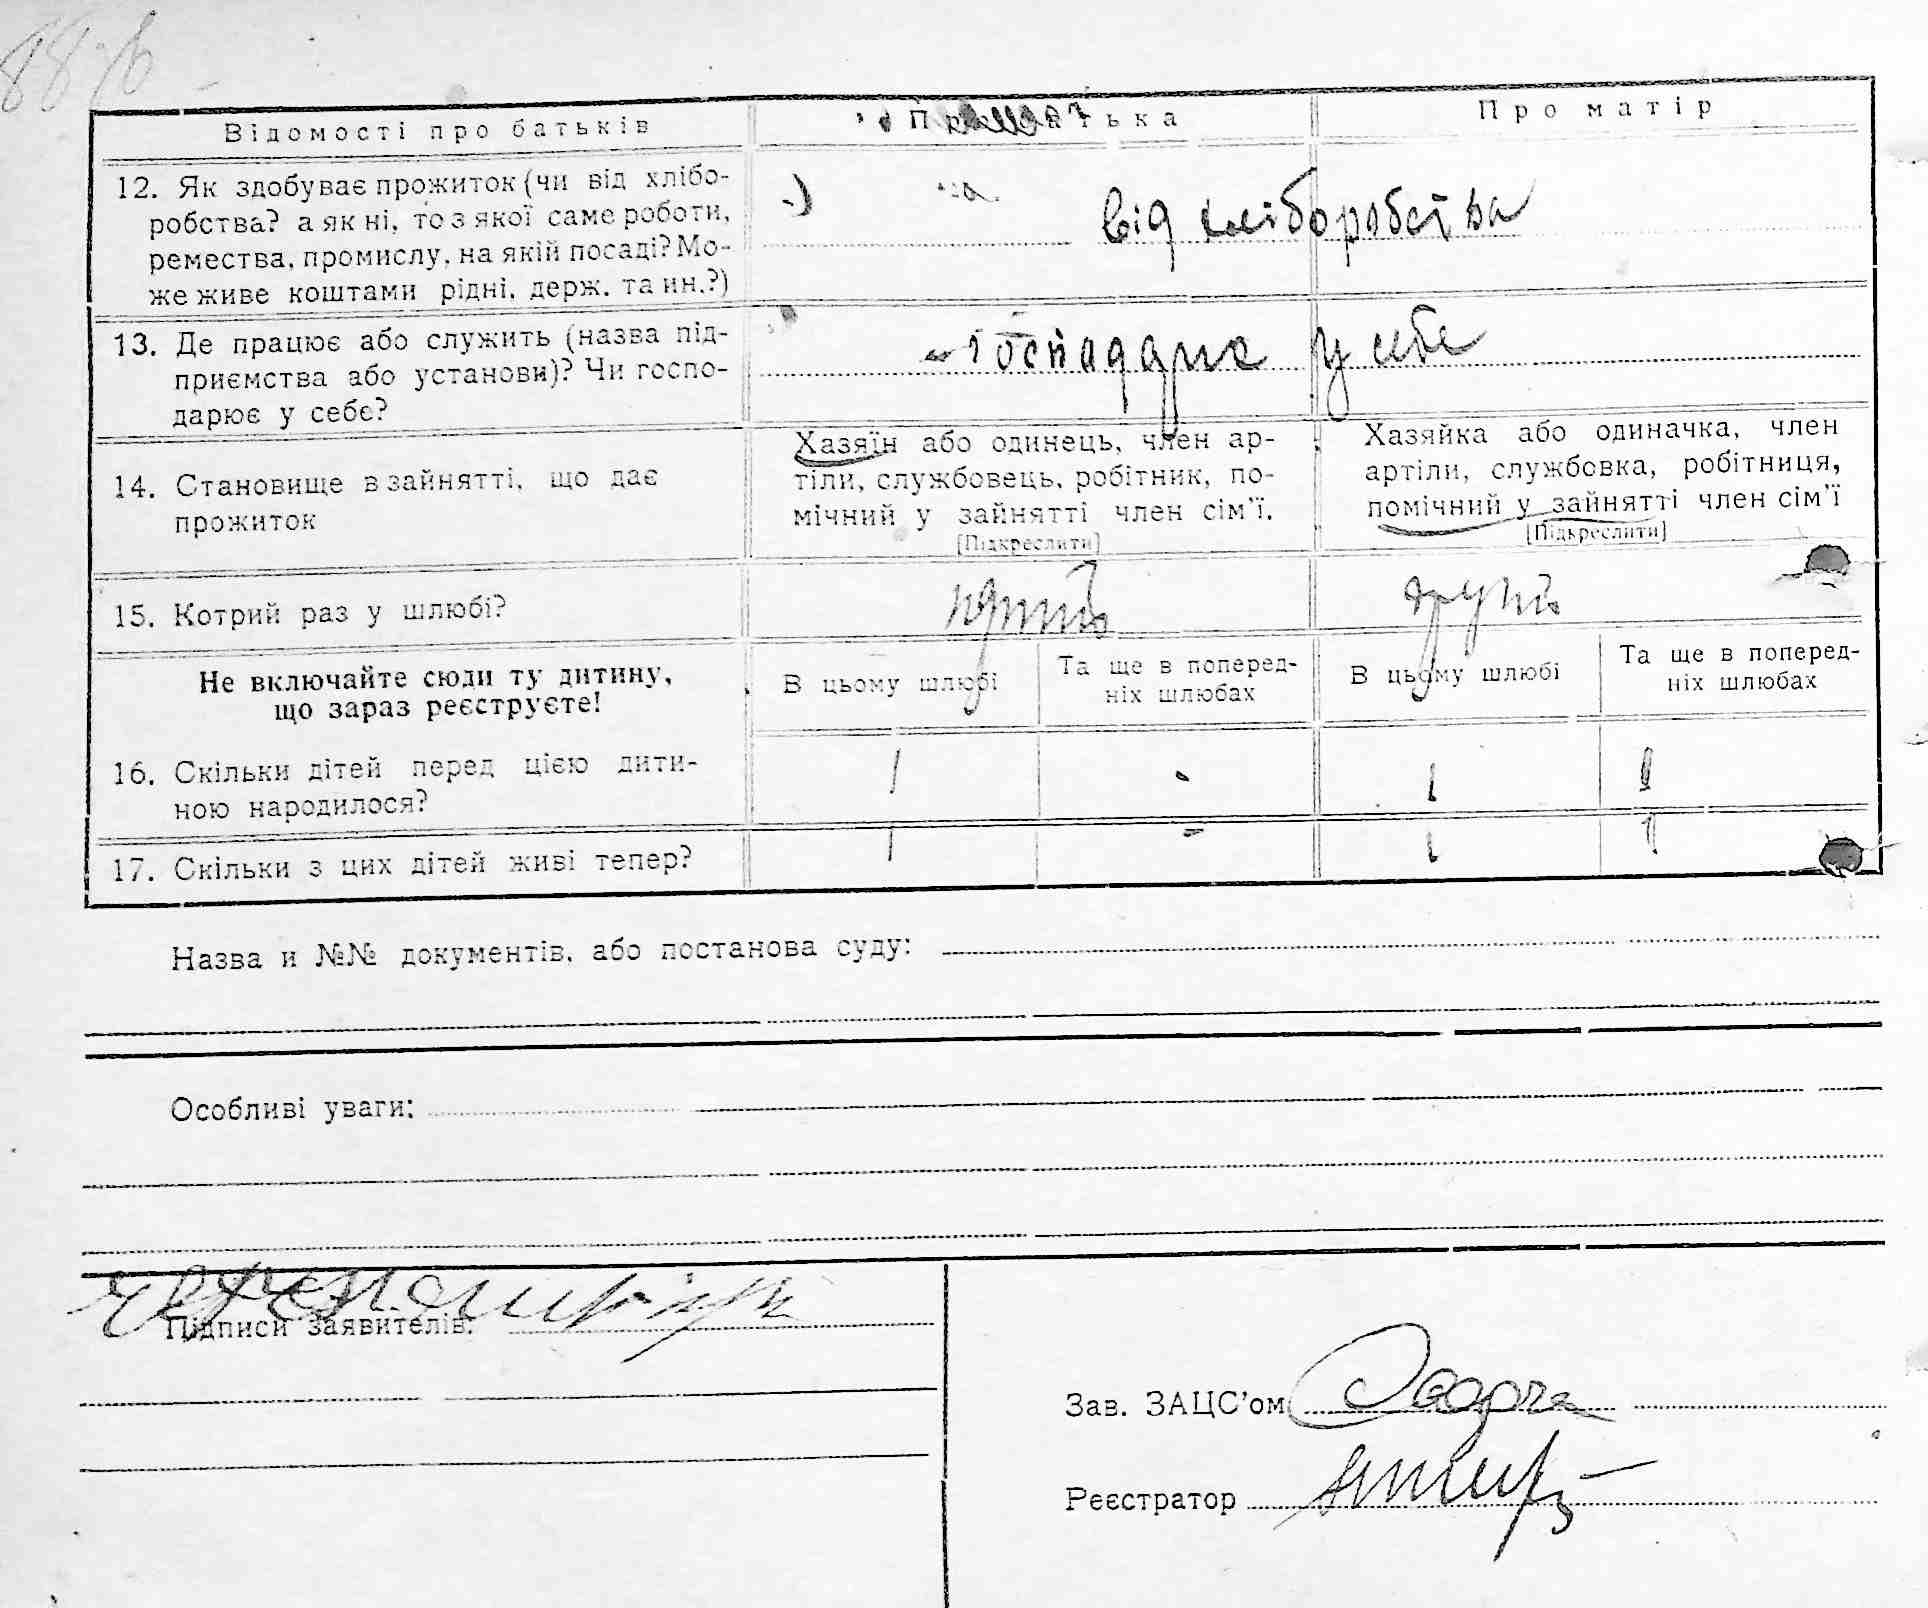 88 зв
Відомості про батьків
Про батька
Про матір
12. Як здобуває прожиток (чи від хлібо-
робства? а як ні, то з якої саме роботи,
ремества, промислу, на якій посаді? Мо-
же живе коштами рідні, держ. та ин.?)
від хліборобства
13. Де працює або служить (назва під-
приємства або установи)? Чи госпо-
дарює у себе?
Господарює у себе
14. Становище в зайнятті, що дає
прожиток
Хазяїн або одинець, член ар-
тіли, службовець, робітник, по-
мічний у зайнятті член сім'ї.
[Підкреслити]
Хазяйка або одиначка, член
артіли, службовка, робітниця,
помічний у зайнятті член сім'ї
[Підкреслити]
15. Котрий раз у шлюбі?
другий
Не включайте сюди ту дитину,
що зараз реєструєте!
В цьому шлюбі
Та ще в поперед-
ніх шлюбах
В цьому шлюбі
Та ще в поперед-
ніх шлюбах
16. Скільки дітей перед цією дити-
ною народилося?
1 - 1 1
17. Скільки з цих дітей живі тепер?
1 - 1 1
Назва и №№ документів, або постанова суду:
Особливі уваги:
Підписи заявителів:
Зав. ЗАЦС'ом
Реєстратор